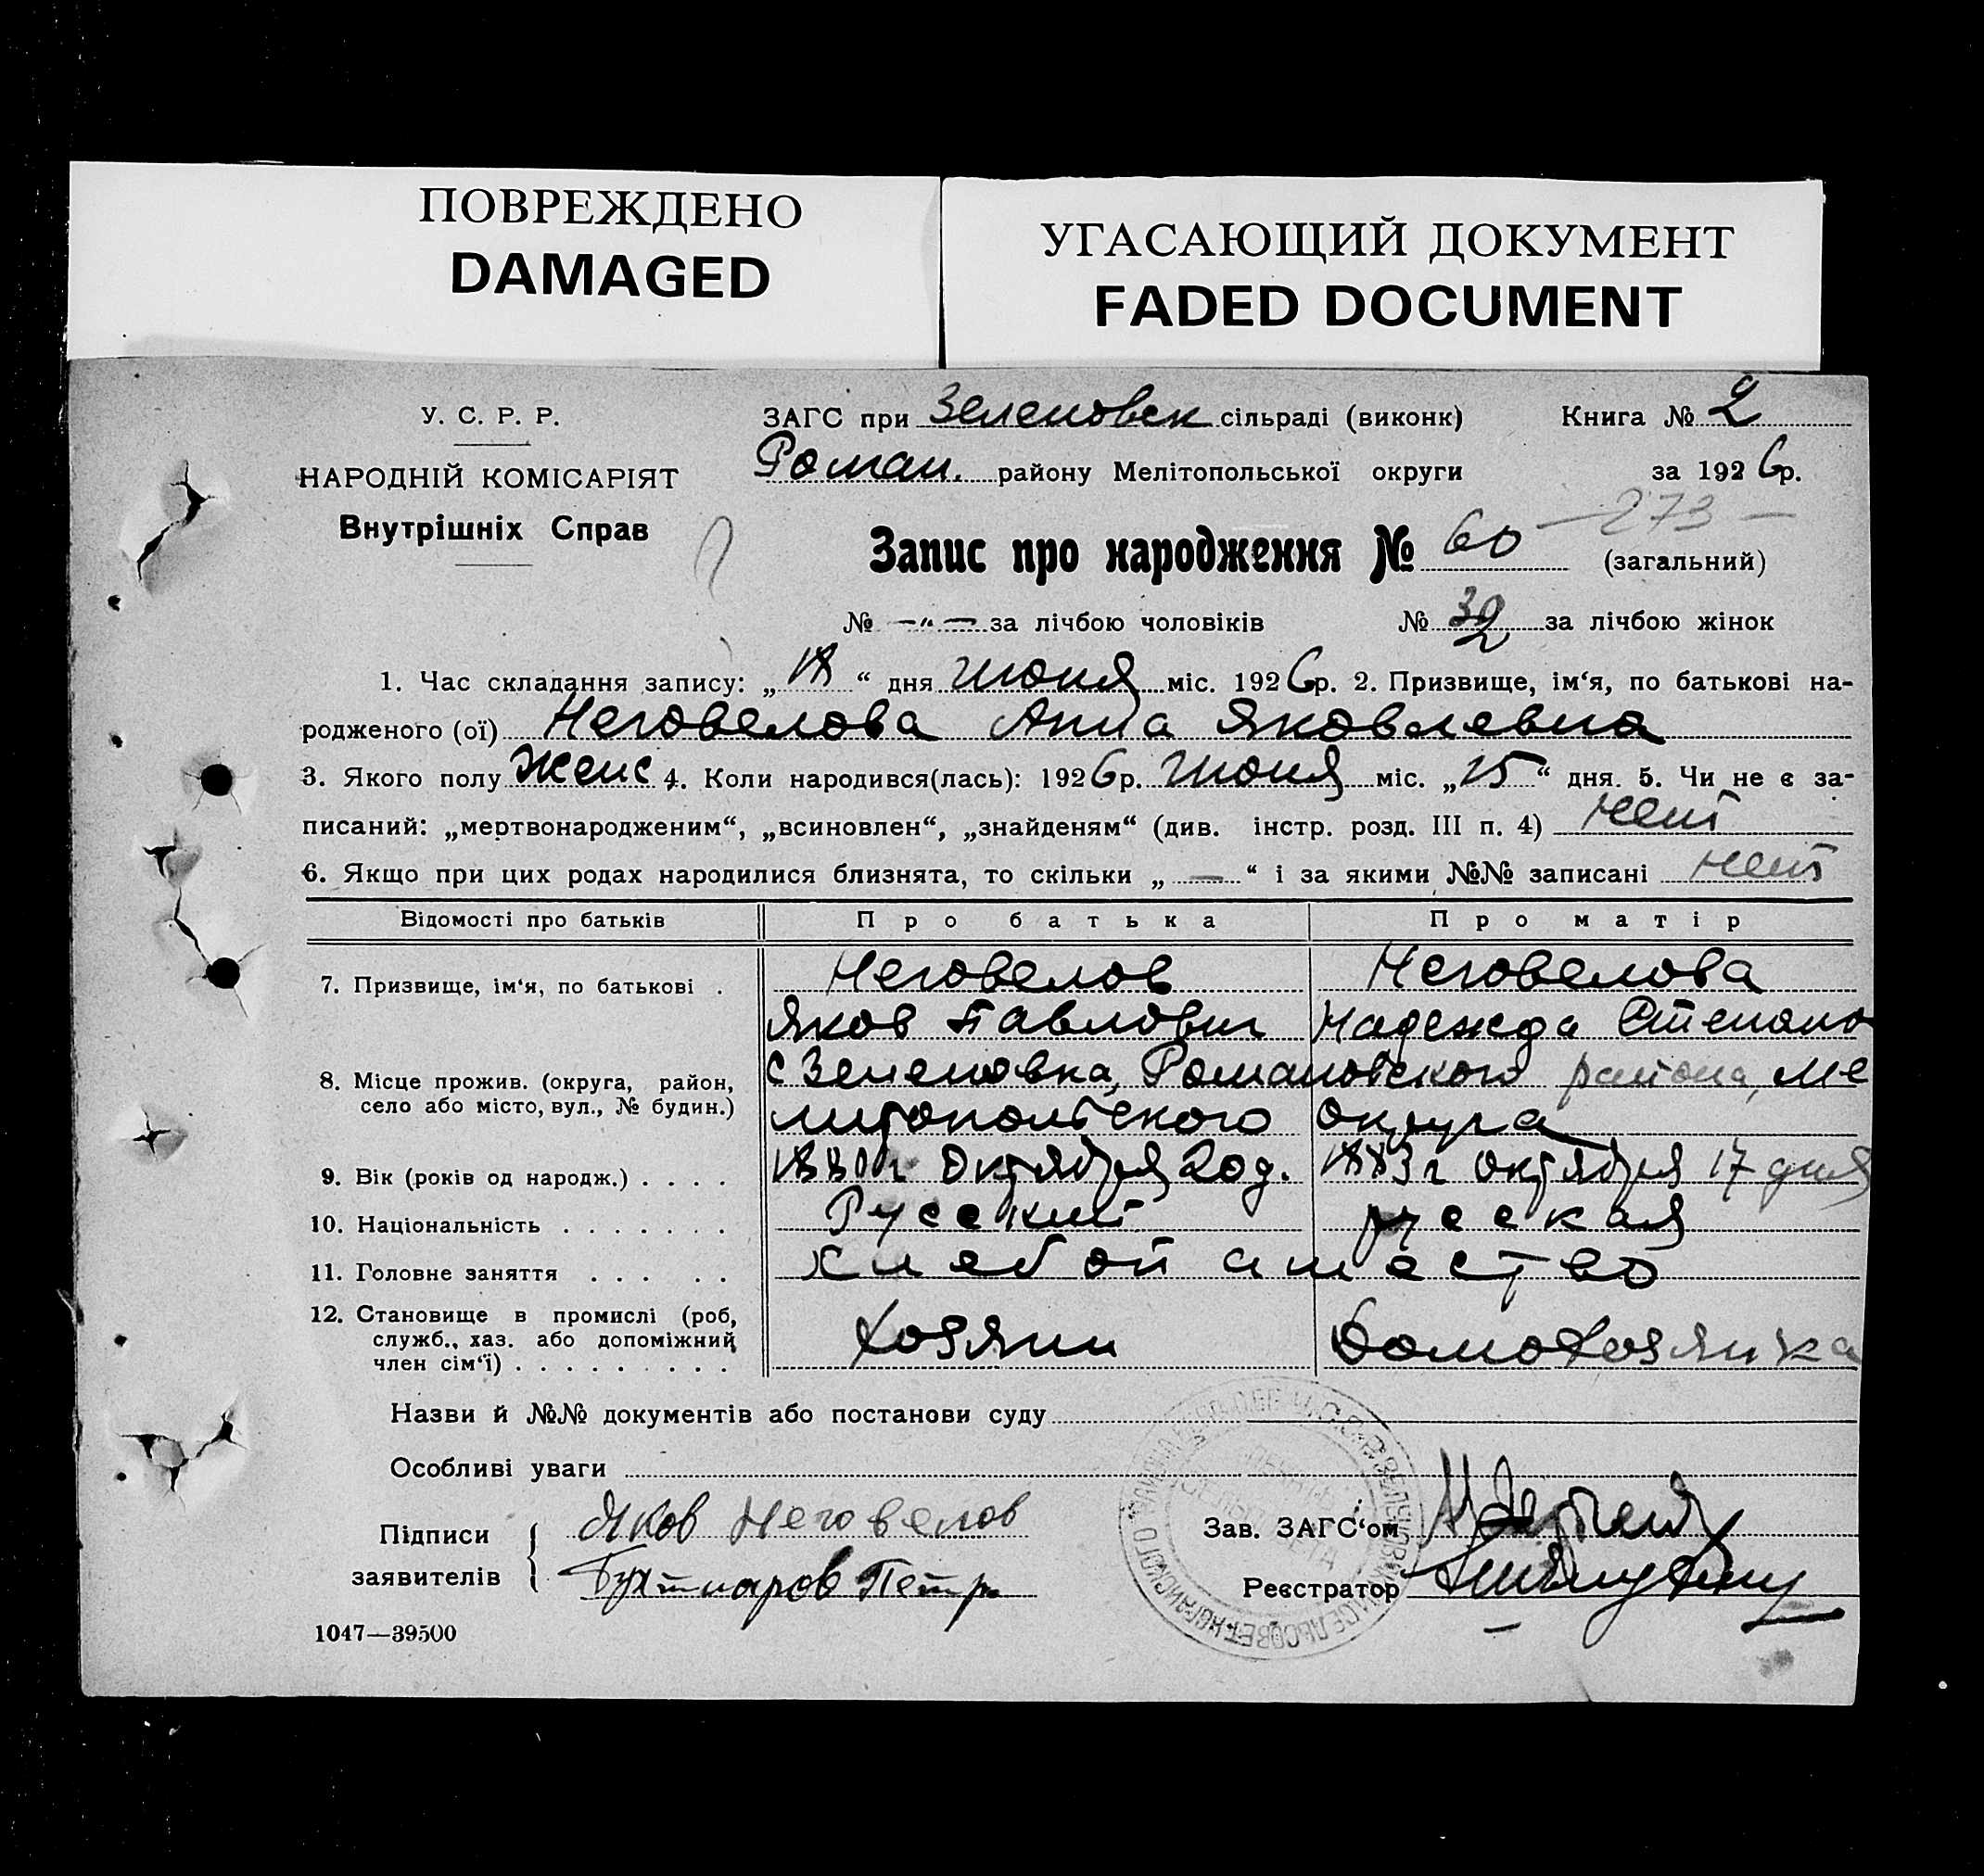 ПОВРЕЖДЕНО
DAMAGED
УГАСАЮЩИЙ ДОКУМЕНТ
FADED DOCUMENT
У. С. Р. Р.
НАРОДНІЙ КОМІСАРІЯТ
Внутрішніх Справ
ЗАГС при Зеленовск сільраді (виконк) Книга № 2
Роман. району Мелітопольської округи за 1926р.
Запис про народження № 60 — 273 — (загальний)
№ —„— за лічбою чоловіків № 32 за лічбою жінок
1. Час складання запису: „18“ дня Июня міс. 1926р. 2. Призвище, ім‘я, по батькові на-
родженого (ої) Неговелова Анна Яковлевна
3. Якого полу Женс 4. Коли народився(лась): 1926р. Июня міс. „15“ дня. 5. Чи не є за-
писаний: „мертвонародженим“, „всиновлен“, „знайденям“ (див. інстр. розд. III п. 4) нет
6. Якщо при цих родах народилися близнята, то скільки „—“ і за якими №№ записані нет
Відомості про батьків Про батька Про матір
7. Призвище, ім‘я, по батькові . Неговелов Неговелова
Яков Павлович Надежда Степано
8. Місце прожив. (округа, район, село або місто, вул., № будин.) с Зеленовка, Романовского района, Ме
литопольского округа
9. Вік (років од народж.) . . . . 1880 г Октября 20 д. 1883 г октября 17 дня
10. Національність . . . . . . . Русский русская
11. Головне заняття . . . . . хлебопашество
12. Становище в промислі (роб, служб., хаз. або допоміжний член сім‘ї) . . . . . . . . . Хозяин Домохозяйка
Назви й №№ документів або постанови суду
Особливі уваги
Підписи заявителів
Яков Неговелов
Петр
Зав. ЗАГС‘ом
Реєстратор
1047—39500